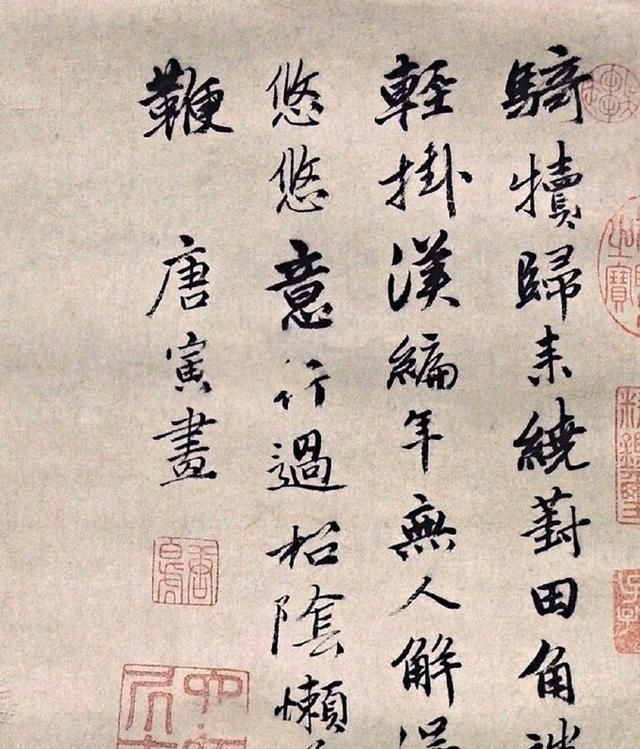 騎犢歸來繞葑田角
輕掛漢編年無人解
悠悠意行過松陰懶
鞭 唐寅畫